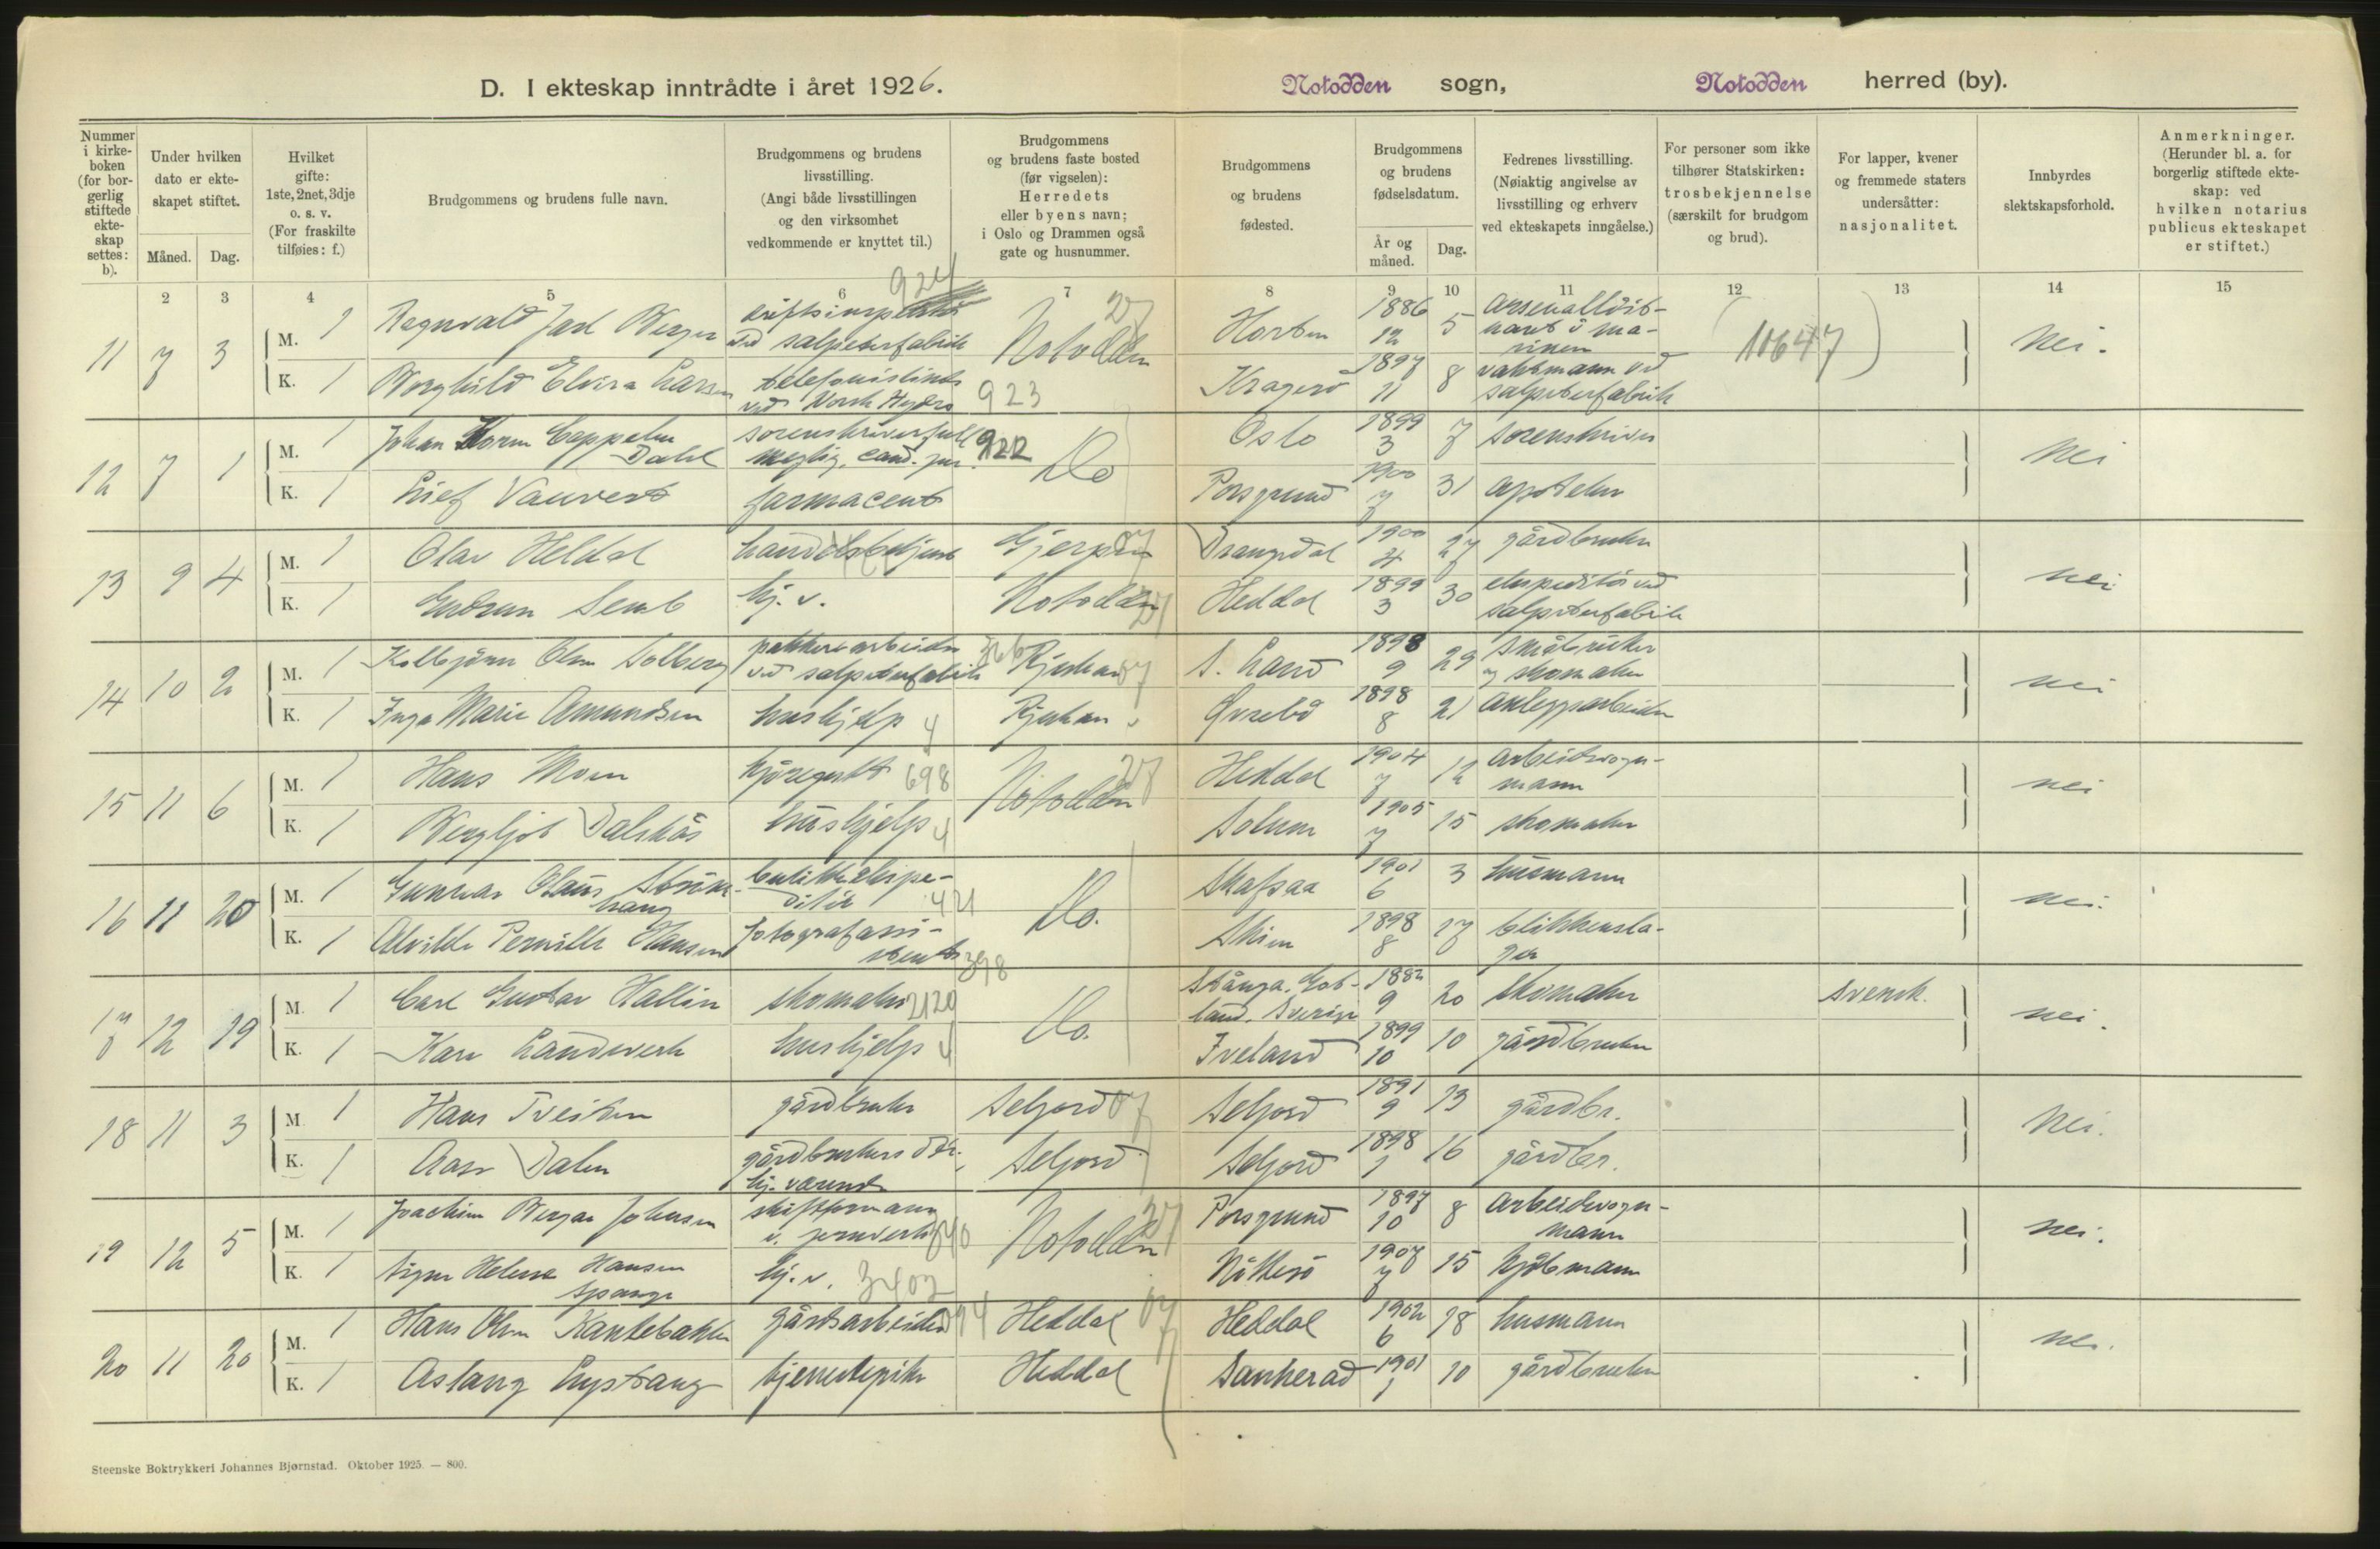 D. I ekteskap inntrådte i året 1926.
Notodden sogn, Notodden herred (by).
Nummer i kirkeboken (for borgerlig stiftede ekteskap settes: b).
Under hvilken dato er ekteskapet stiftet.
Måned. Dag.
Hvilket gifte: 1ste, 2net, 3dje o. s. v. (For fraskilte tilføies: f.)
Brudgommens og brudens fulle navn.
Brudgommens og brudens livsstilling. (Angi både livsstillingen og den virksomhet vedkommende er knyttet til.)
Brudgommens og brudens faste bosted (før vigselen): Herredets eller byens navn; i Oslo og Drammen også gate og husnummer.
Brudgommens og brudens fødested.
Brudgommens og brudens fødselsdatum.
År og måned. Dag.
Fedrenes livsstilling. (Nøiaktig angivelse av livsstilling og erhverv ved ekteskapets inngåelse.)
For personer som ikke tilhører Statskirken: trosbekjennelse (særskilt for brudgom og brud).
For lapper, kvener og fremmede staters undersåtter: nasjonalitet.
Innbyrdes slektskapsforhold.
Anmerkninger. (Herunder bl. a. for borgerlig stiftede ekteskap: ved hvilken notarius publicus ekteskapet er stiftet.)
2 3 4 5 6 7 8 9 10 11 12 13 14 15
11 7 3 M. 1 Ragnvald Jarl Berger ved salpeterfabrik 924 Notodden 27 Horten 1886 12 5 (10647) Nei.
K. 1 Borghild Elvira Larsen telefonistinde ved Norsk Hydro 923 Kragerø 1897 11 8 vaktmann ved salpeterfabrik
12 7 1 M. 1 Johan Cappelen Dahl cand. jur. 922 Do Oslo 1899 3 7 sorenskriver Nei
K. 1 Vauvert farmaceut Porsgrund 1900 7 31 apoteker
13 9 4 M. 1 Olav Heldal handelsbetjent Gjerpen 07 Drangedal 1900 4 27 gårdbruker nei
K. 1 Gudrun Semb hj. v. Notodden 27 Heddal 1899 3 30 ekspeditör ved salpeterfabrik
14 10 2 M. 1 Kolbjörn Olsen Solberg pakkeriarbeider ved salpeterfabrik 366 Rjukan 07 S. Land 1898 9 29 småbruker og skomaker nei
K. 1 Inga Marie Amundsen hushjelp 4 Rjukan Øvrebö 1898 8 21 anleggsarbeider
15 11 6 M. 1 Hans Moen kjøregutt 698 Notodden 27 Heddal 1904 7 12 arbeidsvogn-
mann nei
K. 1 Bergljot Dalskås hushjelp 4 Solum 1905 7 15 skomaker
16 11 20 M. 1 Gunnar Olaus butikkekspe-
ditör 421 Do. Skafsaa 1901 6 3 husmann nei.
K. 1 Alvilde Pernille Hansen fotografassi-
stent 398 Skien 1898 8 17 blikkensla-
ger
17 12 19 M. 1 Carl Gustav Hallin skomaker 2120 Do. Stånga, Got-
land. Sverige 1882 9 20 skomaker svensk. nei.
K. 1 Kari Landsverk hushjelp 4 Iveland 1899 10 10 gårdbruker
18 11 3 M. 1 Hans Tveiten gårdbruker Seljord 07 Seljord 1891 9 13 gårdbr. Nei.
K. 1 Aase Dalen gårdbrukers dtr.
hj. værende Seljord Seljord 1898 1 16 gårdbr.
19 12 5 M. 1 Joachim Berger Johnsen skiftformann
v. jernverk Notodden 27 Porsgrund 1897 10 8 arbeidsvogn-
mann nei.
K. 1 Signe Helene Hansen
Spange hj. v. 3402 Nötterö 1907 7 15 kjöbmann
20 11 20 M. 1 Hans Olsen Kantebakke gårdsarbeider Heddal 07 Heddal 1902 6 18 husmann nei.
K. 1 Aslaug tjenestepike Heddal Sauherad 1901 1 10 gårdbruker
Steenske Boktrykkeri Johannes Bjørnstad. Oktober 1925. — 800.